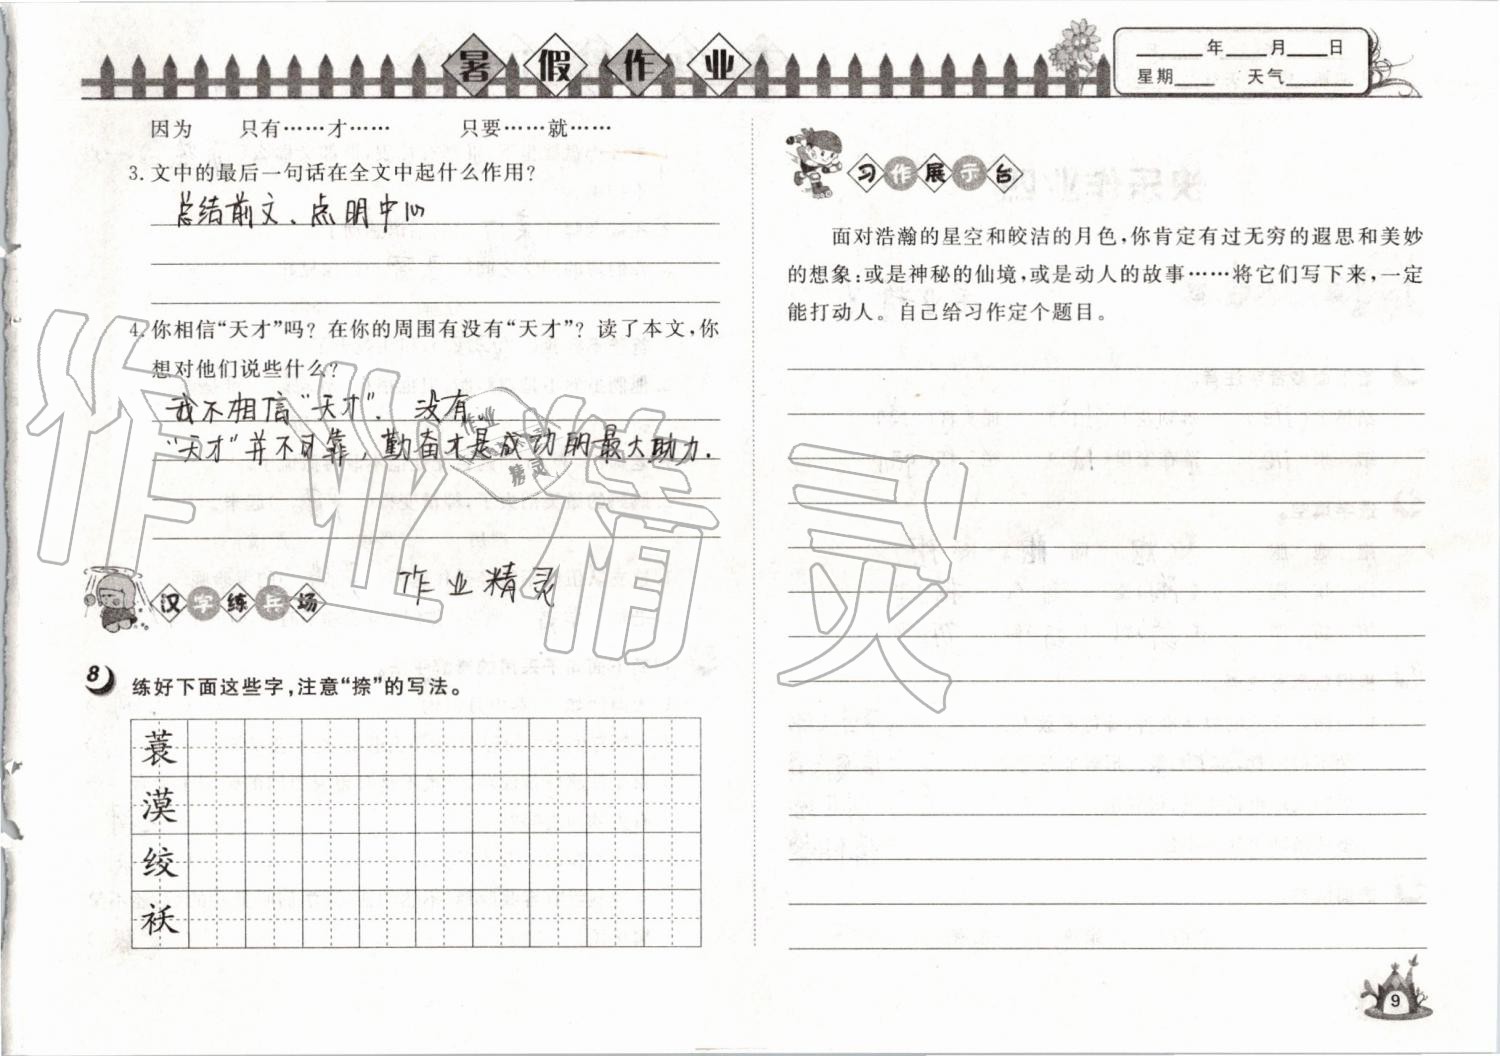 暑假作业
____年____月____日
星期____ 天气______
因为 只有……才…… 只要……就……
3. 文中的最后一句话在全文中起什么作用?
总结前文、点明中心
4. 你相信“天才”吗? 在你的周围有没有“天才”? 读了本文,你
想对他们说些什么?
我不相信“天才”. 没有.
“天才”并不可靠 勤奋才是成功的最大助力.
作业精灵
汉字练兵场
8 练好下面这些字,注意“捺”的写法。
蓑
漠
绞
袄
习作展示台
面对浩瀚的星空和皎洁的月色,你肯定有过无穷的遐思和美妙
的想象:或是神秘的仙境,或是动人的故事……将它们写下来,一定
能打动人。自己给习作定个题目。
作业精灵
9